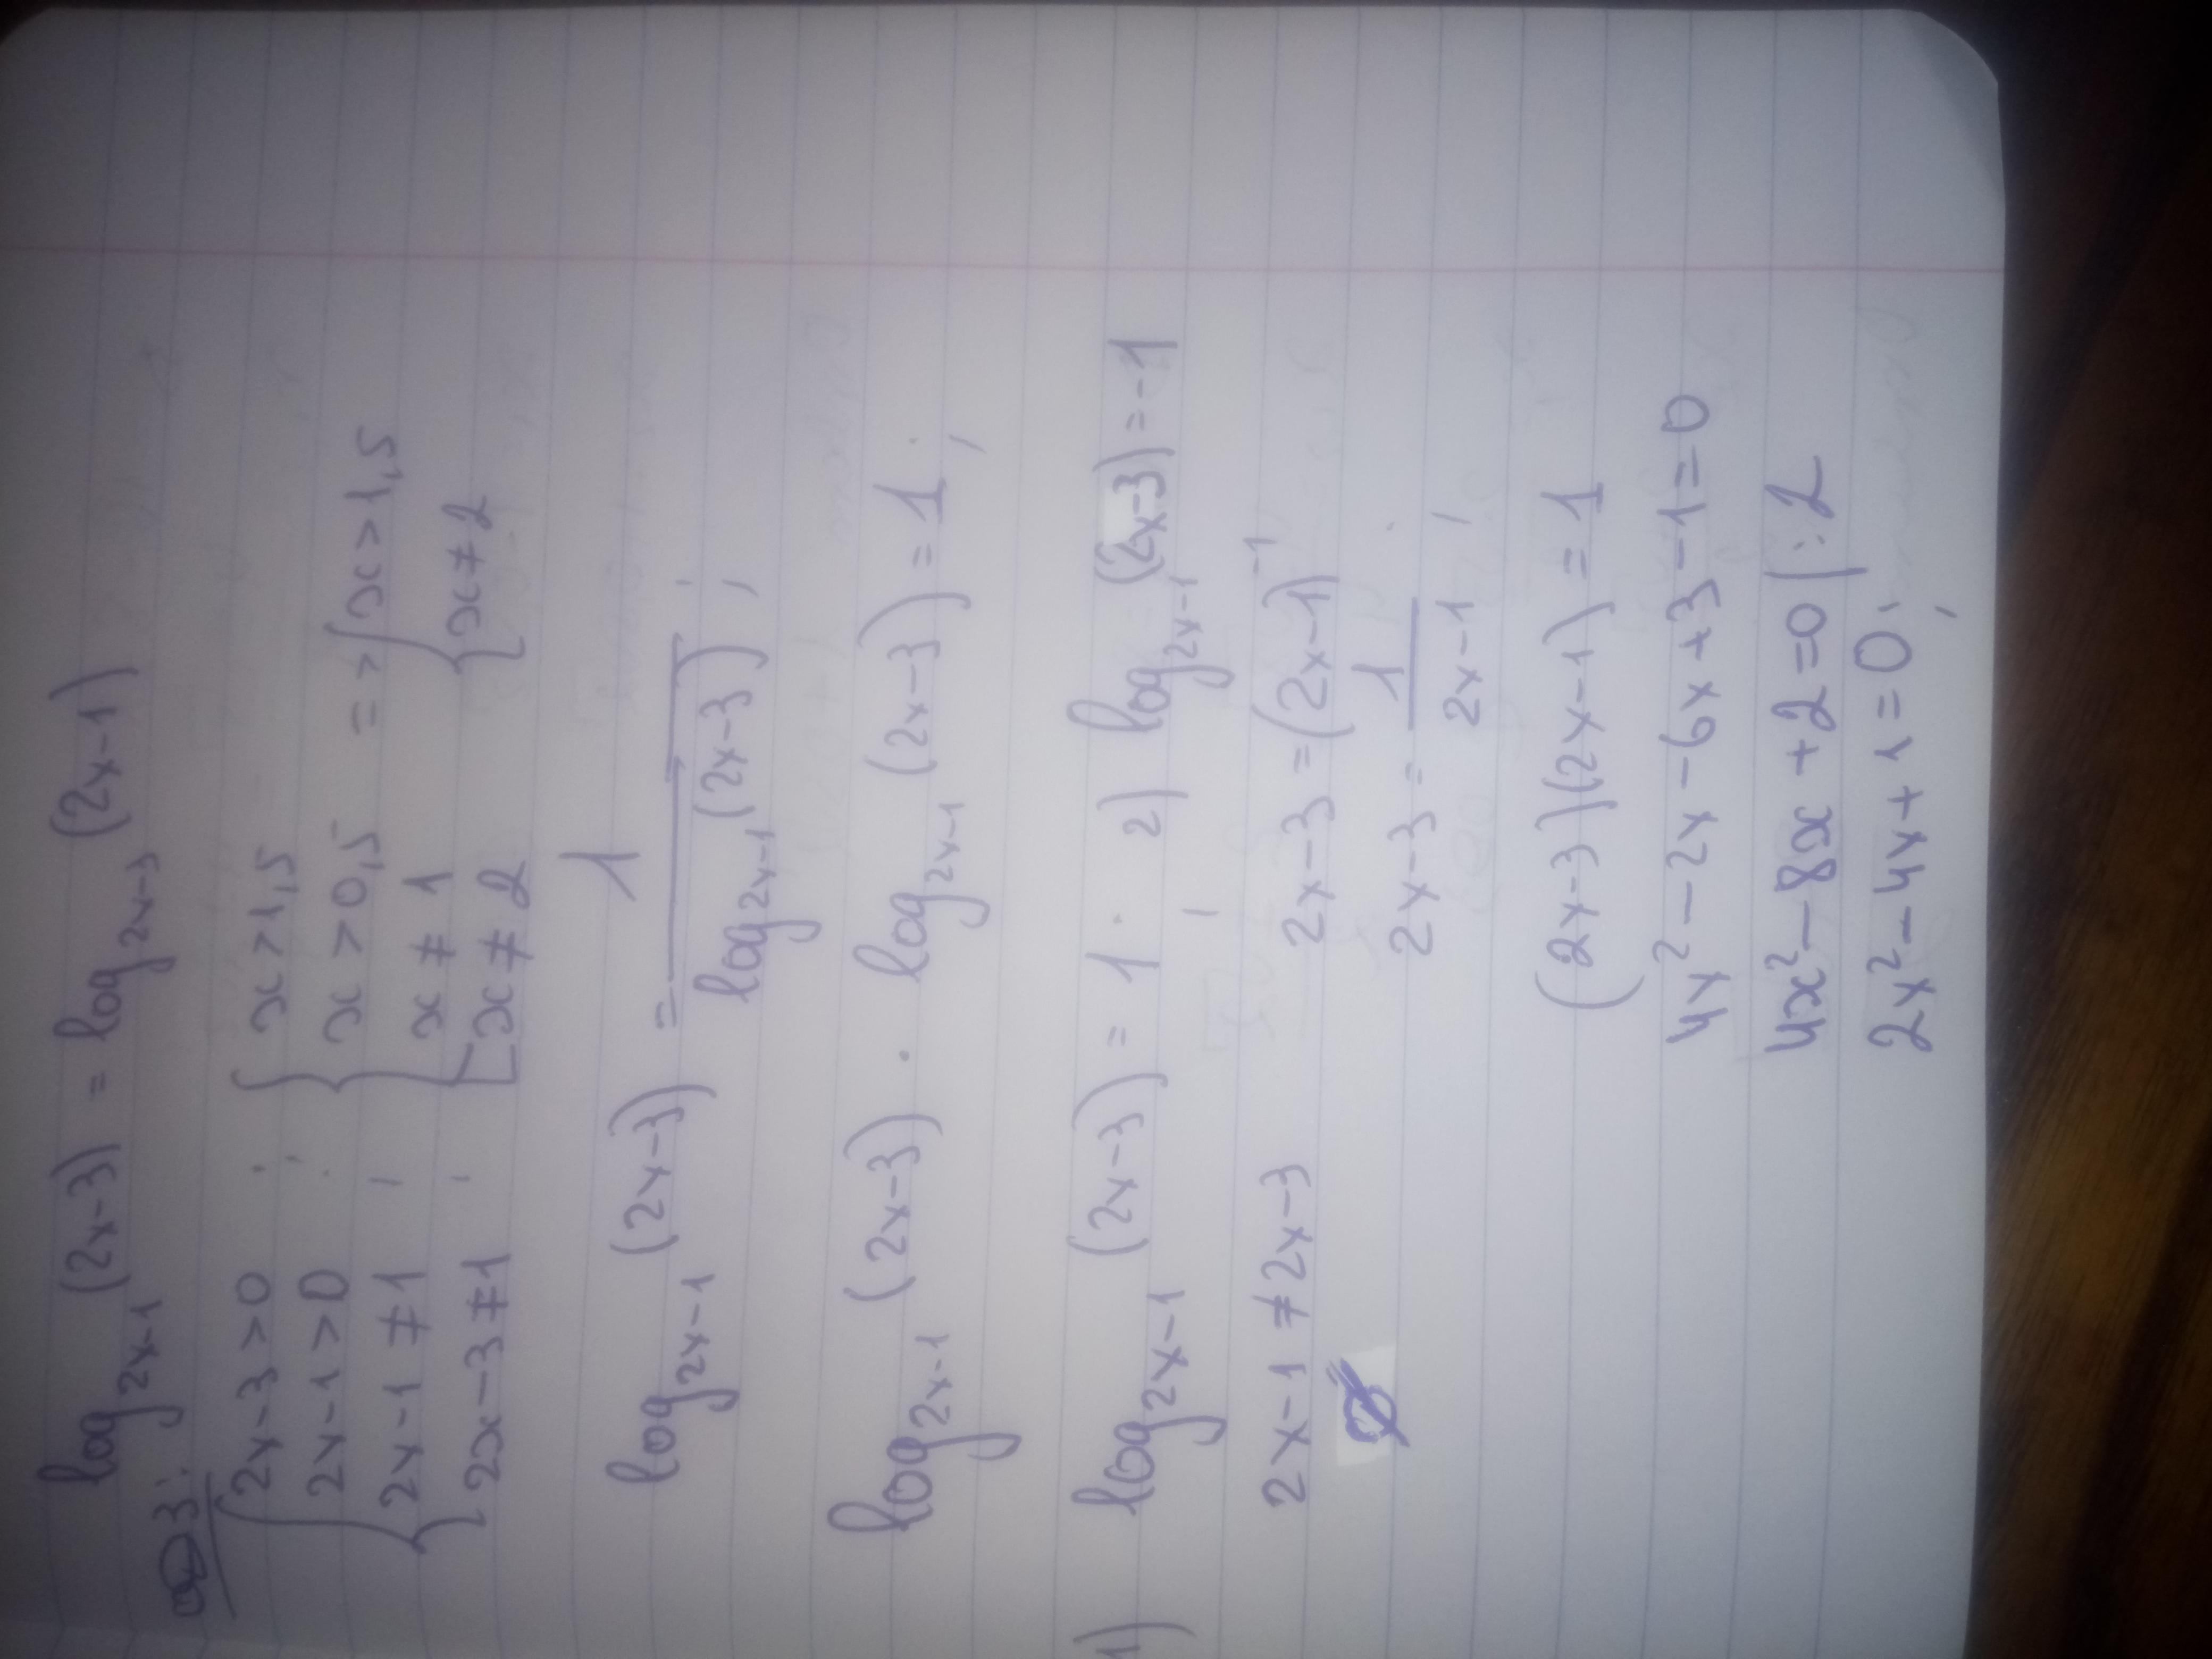 log₂ₓ₋₁ (2x-3) = log₂ₓ₋₃ (2x-1)
ОДЗ:
{ 2x-3>0 ; { x>1,5
2x-1>0 ; x>0,5 => { x>1,5
2x-1≠1 ; x≠1 x≠2
2x-3≠1 ; x≠2
log₂ₓ₋₁ (2x-3) = 1/log₂ₓ₋₁(2x-3) ;
log₂ₓ₋₁ (2x-3) · log₂ₓ₋₁ (2x-3) = 1 ;
1) log₂ₓ₋₁ (2x-3) = 1 ; 2) log₂ₓ₋₁ (2x-3) = -1
2x-1≠2x-3 2x-3 = (2x-1)⁻¹
∅ 2x-3 = 1/(2x-1) ;
(2x-3)(2x-1) = 1
4x²-2x-6x+3-1=0
4x²-8x+2=0 |:2
2x²-4x+1=0 ;